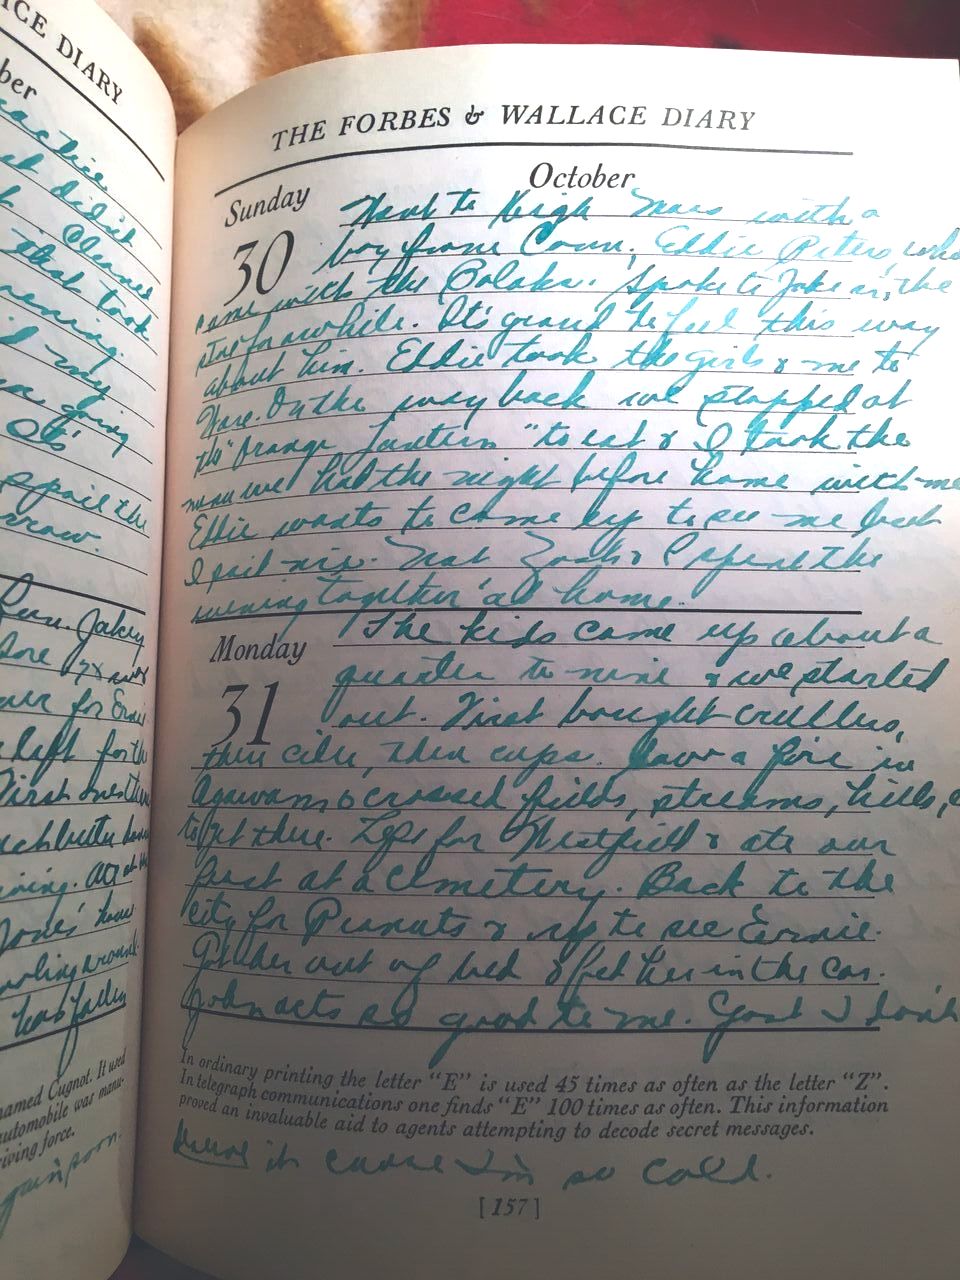 ICE DIARY
ber
actice
THE FORBES & WALLACE DIARY
October
Sunday
30
Went to High Mass with a
boy from Conn, Eddie Peters, who
came with the Polaks. Spoke to Jake in the
store for awhile. It's grand to feel this way
about him. Eddie took the girls & me to
Ware. On the way back we stopped at
the "Orange Lantern" to eat & I took the
man we had the night before home with me
Eddie wants to come up to see me but
I said nix. & I spent the
evening together at home.
Monday
31
The kids came up about a
quarter to nine & we started
out. First bought crullers,
then cider, then cups. Saw a fire in
Agawam & crossed fields, streams, hills,
to get there. Left for Westfield & ate our
first at a cemetery. Back to the
city for Peanuts & up to see Ernie.
Got her out of bed & fed her in the car.
John acts so good to me. Gosh I don't
In ordinary printing the letter "E" is used 45 times as often as the letter "Z".
In telegraph communications one finds "E" 100 times as often. This information
proved an invaluable aid to agents attempting to decode secret messages.
deserve it cause I'm so cold.
[157]
did it
Cleaned
that took
evening.
my
giving
spoil the
Fun. Jakey
for Ernie
left for the
First
Jones' house
around.
has fallen
named Cugnot. It used
automobile was manu-
riving force.